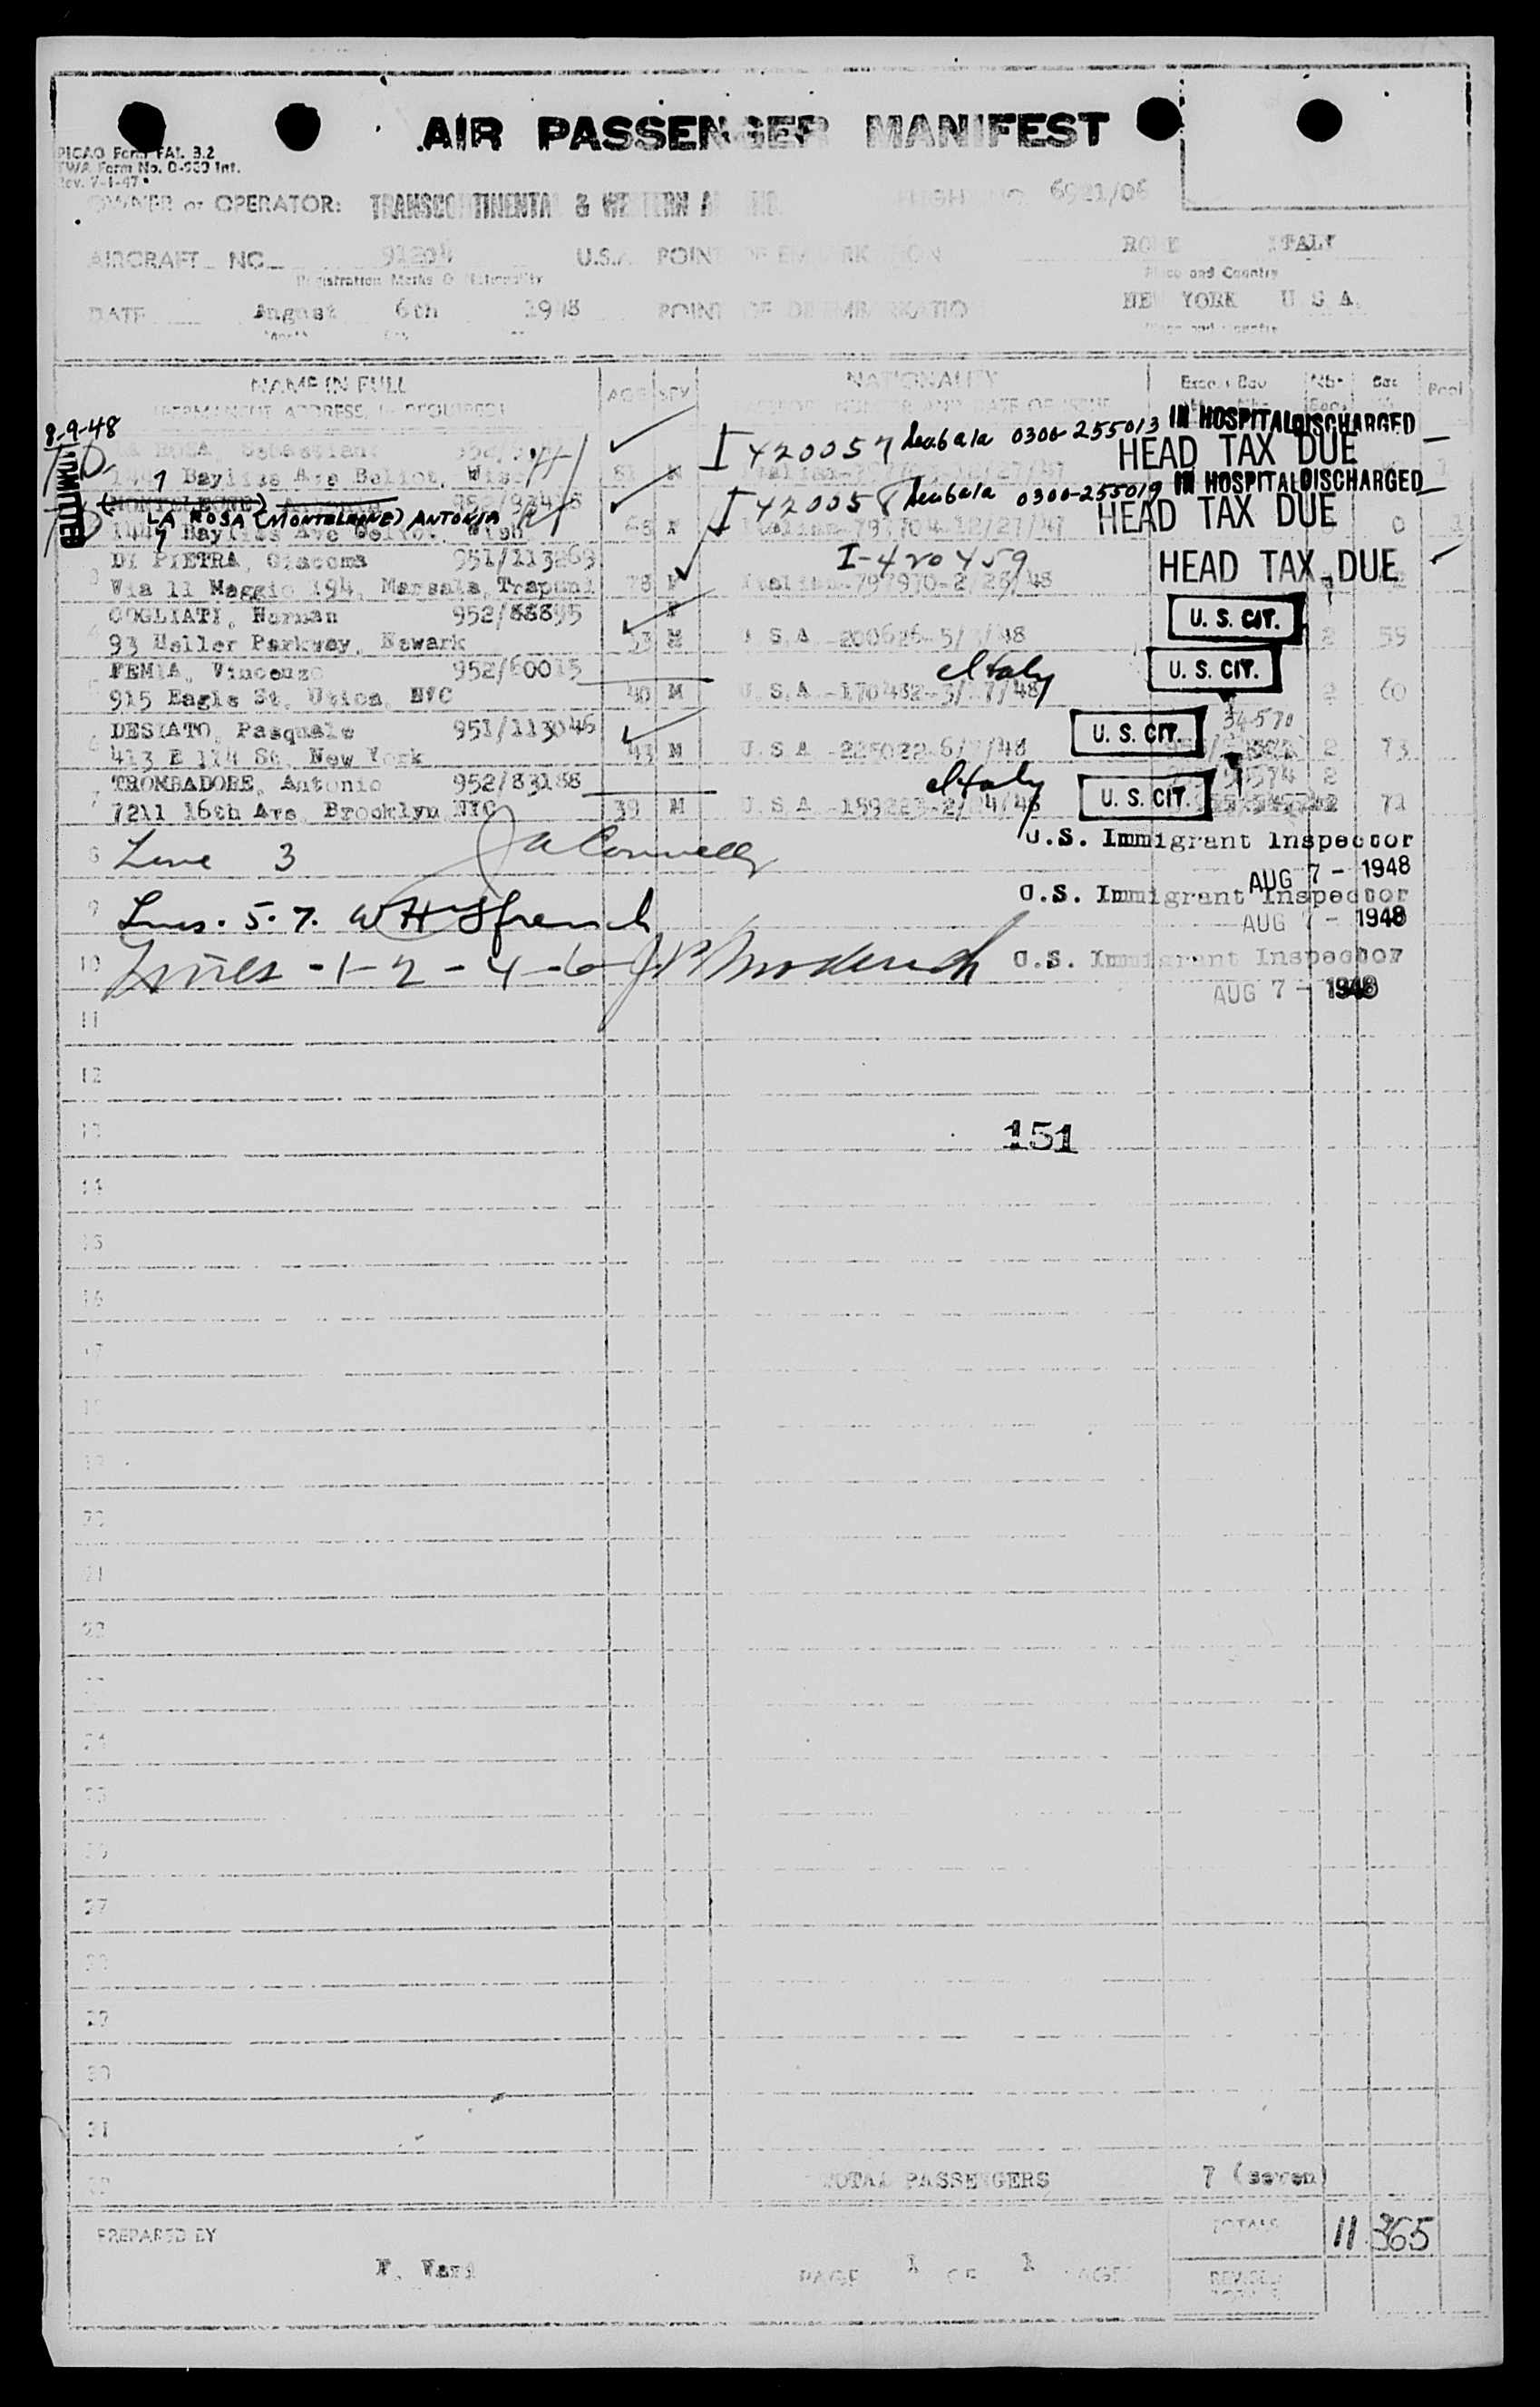 AIR PASSENGER MANIFEST
PICAO Form FAL 3.2
TWA Form No. 0-960 Int.
Rev. 7-1-47
OWNER or OPERATOR: TRANSCONTINENTAL & WESTERN AIR INC. FLIGHT NO. 6921/06
AIRCRAFT NC 91204 U.S.A. POINT OF EMBARKATION ROME ITALY
Registration Marks & Nationality Place and Country
DATE August 6th 1948 POINT OF DISEMBARKATION NEW YORK U S A
Month Place and Country
NAME IN FULL AGE SEX NATIONALITY
(PERMANENT ADDRESS, IF REQUIRED)
8-9-48
ADMITTED
LA ROSA, Sebastiano I 420057 0300-255013 IN HOSPITAL DISCHARGED
1447 Bayliss Ave Beloit, Wisc 81 M HEAD TAX DUE
(MONTELEONE) Antonia I 420058 0300-255019 IN HOSPITAL DISCHARGED
LA ROSA (MONTELEONE) ANTONIA HEAD TAX DUE
1447 Bayliss Ave Beloit 68 F Italian-797704-12/27/47 0 1
DI PIETRA, Giacoma 951/113269 I-420459 HEAD TAX DUE
Via 11 Maggio 194, Marsala, Trapani 78 F Italian-797970-2/26/48
COGLIATI, Herman 952/88895 U. S. CIT.
93 Heller Parkway, Newark 53 M U.S.A -200626-5/ /48 2 59
FEMIA, Vincenzo 952/60015 Italy U. S. CIT.
915 Eagle St. Utica NYC 40 M U.S.A -170482-3/17/48 2 60
DESIATO, Pasquale 951/113046 U. S. CIT. 34570
413 E 114 St. New York 43 M U.S.A -225022-6/7/48 2 73
TROMBADORE, Antonio 952/83188 Italy U. S. CIT.
7211 16th Ave Brooklyn NYC 39 M U.S.A -159223-2/24/48 72
8 Line 3 JA Connelly U.S. Immigrant Inspector
AUG 7 - 1948
9 Lines. 5. 7. WH French U.S. Immigrant Inspector
AUG 7 - 1948
10 Lines - 1 - 2 - 4 - 6 U.S. Immigrant Inspector
AUG 7 - 1948
11
12
13 151
14
15
16
17
18
19
20
21
22
23
24
25
26
27
28
29
30
31
32 TOTAL PASSENGERS 7 (seven)
PREPARED BY TOTALS 11 365
PAGE 1 OF 1 PAGES